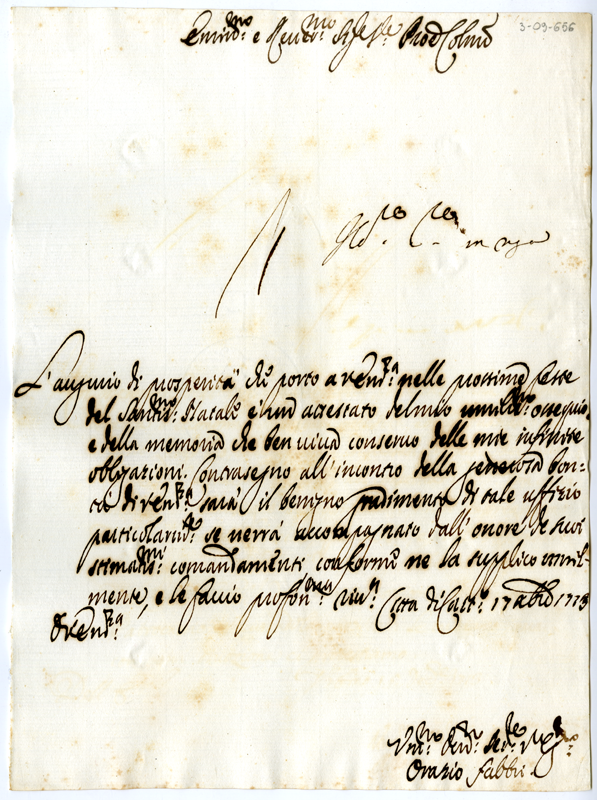 3-09-656
Emin.mo e Rev.mo Sig.re Sig.re Pron Colmo
L'augurio di prosperità che porto a V. Em.za nelle prossime feste
del Santis.mo Natale è un attestato del mio umilis.mo ossequio
e della memoria che ben viva conservo delle mie infinite
obligazioni. Contrasegno all'incontro della generosa bon-
tà di V. Em.za sarà il benigno gradimento di tale uffizio
particolarm.te se verrà accompagnato dall'onore de suoi
stimatis.mi comandamenti conforme ne la supplico umil-
mente, e le faccio profon.ma riv.za Città di Cast.o 17 Xbre 1713
D V. Em.za
Um.mo
Orazio Fabbri